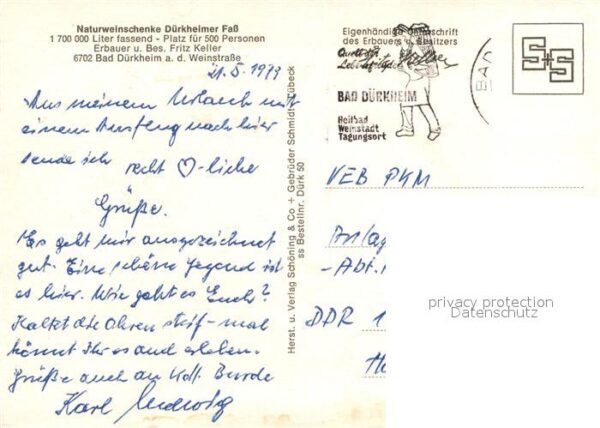 Naturweinschenke Dürkheimer Faß
1 700 000 Liter fassend - Platz für 500 Personen
Erbauer u. Bes. Fritz Keller
6702 Bad Dürkheim a. d. Weinstraße
21.5.1979
Aus meinem Urlaub mit
einem Ausflug nach hier
sende ich recht ♡-liche
Grüße.
Es geht mir ausgezeichnet
gut. Eine schöne Gegend ist
es hier. Wie geht es Euch?
Haltet die Ohren steif - mal
könnt Ihr es auch erleben.
Grüße auch an Koll. Burde
Karl Ludwig
Herst. u. Verlag Schöning & Co + Gebrüder Schmidt, Lübeck
ss Bestellnr. Dürk 50
Eigenhändige Unterschrift
des Erbauers u. Besitzers
Keller
BAD DÜRKHEIM
Heilbad
Weinstadt
Tagungsort
BAD
S+S
VEB PKM
Anlag
-Abt.
DDR 1
privacy protection
Datenschutz